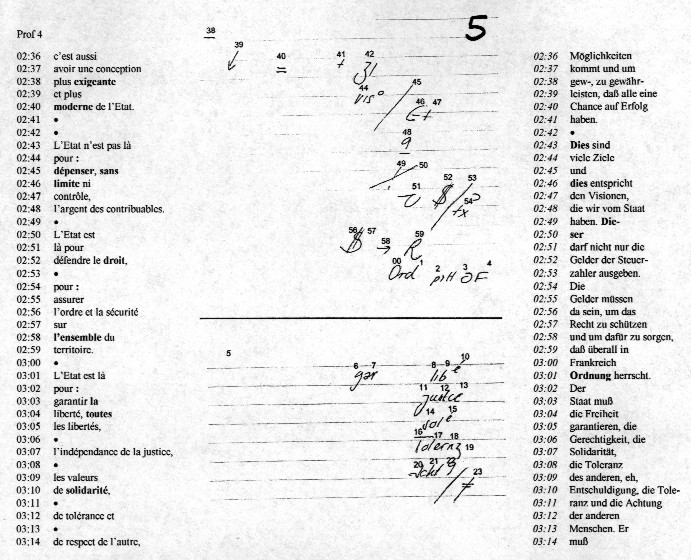 Prof 4
5
02:36 c'est aussi
02:37 avoir une conception
02:38 plus exigeante
02:39 et plus
02:40 moderne de l'Etat.
02:41 •
02:42 •
02:43 L'Etat n'est pas là
02:44 pour :
02:45 dépenser, sans
02:46 limite ni
02:47 contrôle,
02:48 l'argent des contribuables.
02:49 •
02:50 L'Etat est
02:51 là pour
02:52 défendre le droit,
02:53 •
02:54 pour :
02:55 assurer
02:56 l'ordre et la sécurité
02:57 sur
02:58 l'ensemble du
02:59 territoire.
03:00 •
03:01 L'Etat est là
03:02 pour :
03:03 garantir la
03:04 liberté, toutes
03:05 les libertés,
03:06 •
03:07 l'indépendance de la justice,
03:08 •
03:09 les valeurs
03:10 de solidarité,
03:11 •
03:12 de tolérance et
03:13 •
03:14 de respect de l'autre,
38
39
40 41 42
=  +
44 45
vis°
46 47
48
49 50
51 52 53
$ 54
tx
56 57 58 59
$ → R
00 1 2 3 4
Ord
5
6 7 8 9 10
gar lib e
11 12 13
justice
14 15
sol e
16 17 18
toleranz 19
20 21 22 23
≠
02:36 Möglichkeiten
02:37 kommt und um
02:38 gew-, zu gewähr-
02:39 leisten, daß alle eine
02:40 Chance auf Erfolg
02:41 haben.
02:42 •
02:43 Dies sind
02:44 viele Ziele
02:45 und
02:46 dies entspricht
02:47 den Visionen,
02:48 die wir vom Staat
02:49 haben. Die-
02:50 ser
02:51 darf nicht nur die
02:52 Gelder der Steuer-
02:53 zahler ausgeben.
02:54 Die
02:55 Gelder müssen
02:56 da sein, um das
02:57 Recht zu schützen
02:58 und um dafür zu sorgen,
02:59 daß überall in
03:00 Frankreich
03:01 Ordnung herrscht.
03:02 Der
03:03 Staat muß
03:04 die Freiheit
03:05 garantieren, die
03:06 Gerechtigkeit, die
03:07 Solidarität,
03:08 die Toleranz
03:09 des anderen, eh,
03:10 Entschuldigung, die Tole-
03:11 ranz und die Achtung
03:12 der anderen
03:13 Menschen. Er
03:14 muß